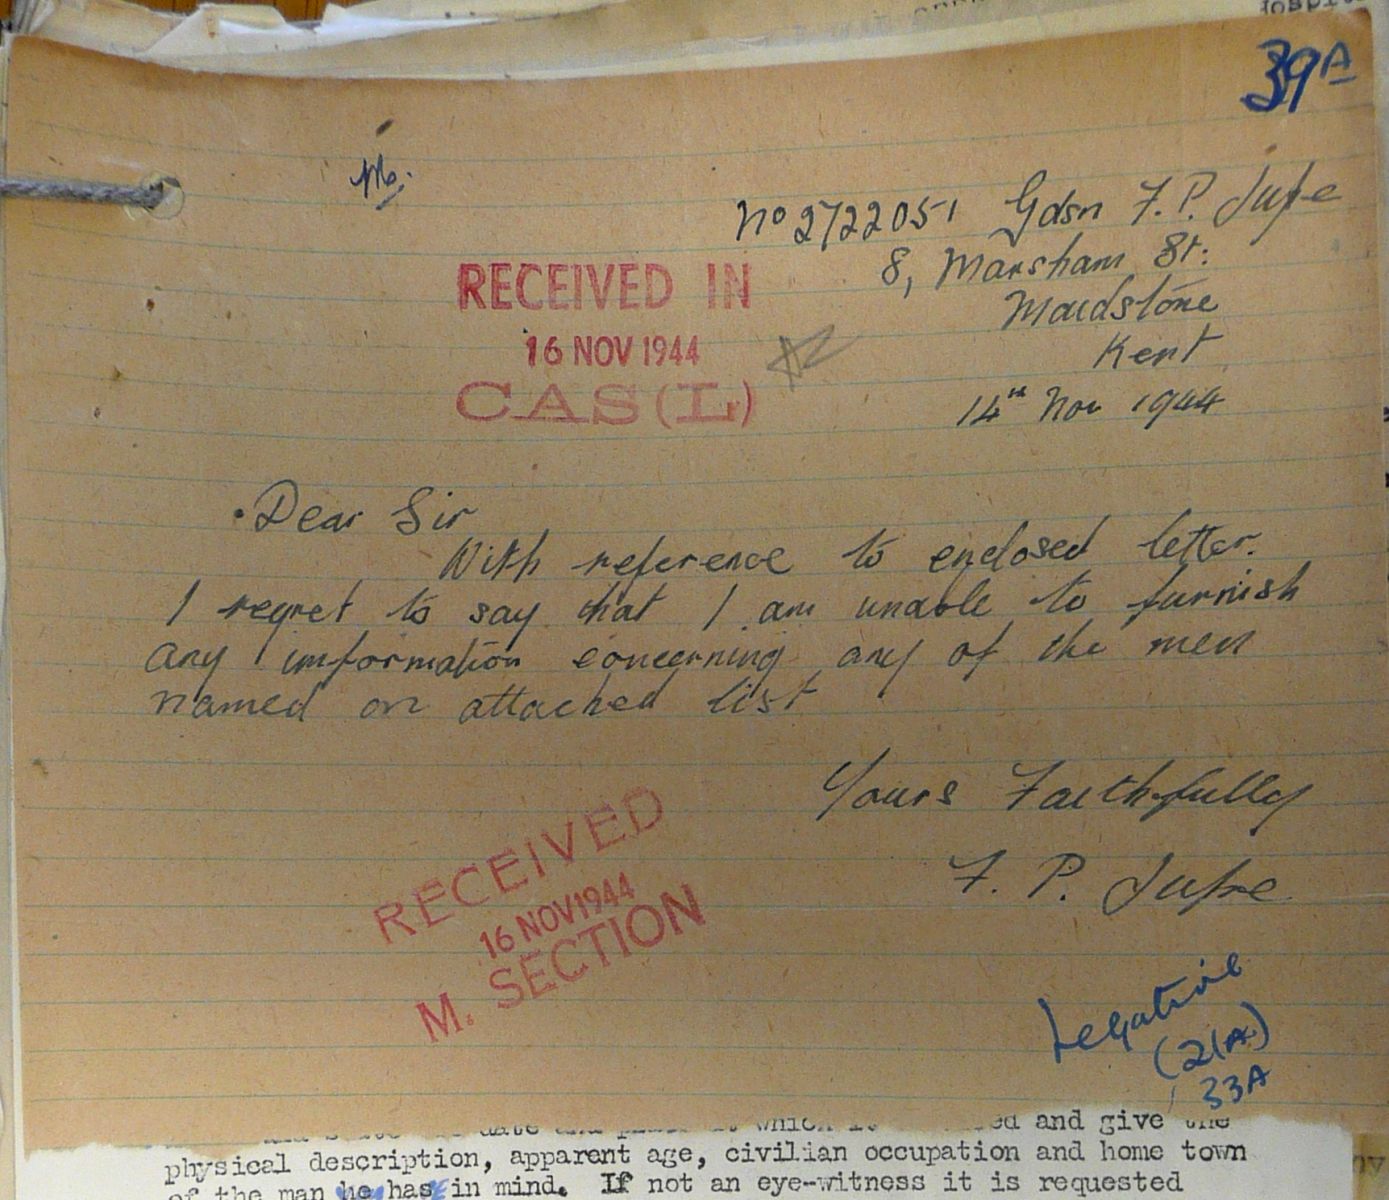 39A
No 2722051 Gdsn F. P. Jupe
8, Marsham St:
Maidstone
Kent
14th Nov 1944
RECEIVED IN
16 NOV 1944
CAS(L)
Dear Sir
With reference to enclosed letter.
I regret to say that I am unable to furnish
any information concerning any of the men
named on attached list
Yours Faithfully
F. P. Jupe
RECEIVED
16 NOV 1944
M. SECTION
Negative
(21A)
33A
date and which and give the
physical description, apparent age, civilian occupation and home town
of the man he has in mind. If not an eye-witness it is requested